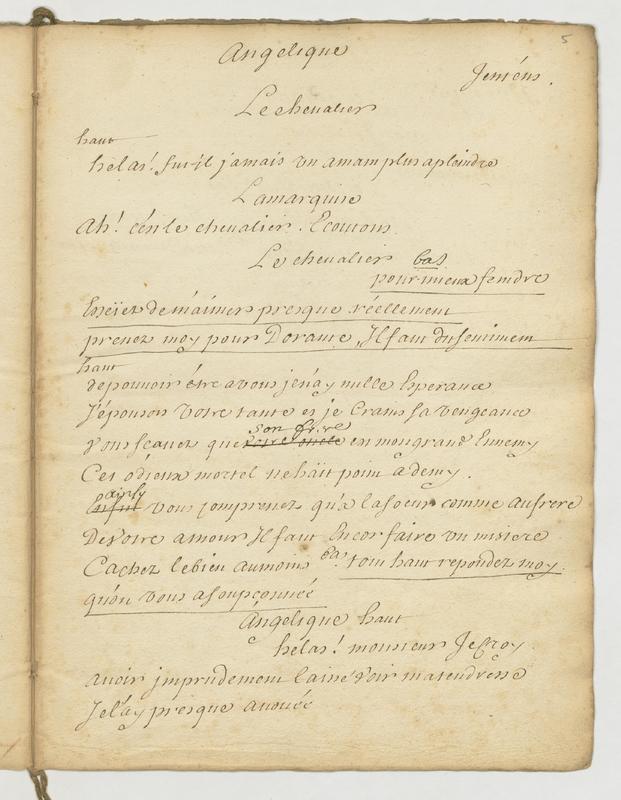 5
Angelique
Jentens.
Le chevalier
haut
helas! fut-il jamais un amant plus aplaindre
Lamarquise
Ah! cést le chevalier. Ecoutons
Le chevalier bas
pour mieux feindre
Essaiez de maimer presque réellement
prenez moy pour Dorante, Il faut du sentiment
haut
de pouvoir étre a vous je náy nulle Esperance
J'épousois votre tante et je Crains sa vengeance
vous scavez que votre oncle son frere est mon grand Ennemy
Cet odieux mortel ne hait point a demy.
Enfin parsy vous comprenez qu'a la soeur comme au frere
De votre amour Il faut Encor faire un mistere
Cachez le bien au moins bas tout haut repondez moy
qu'on vous a soupçonnée
Angelique haut
helas! monsieur Je croy
avoir jmprudement laissé voir ma tendresse
Je l'ay presque avouée